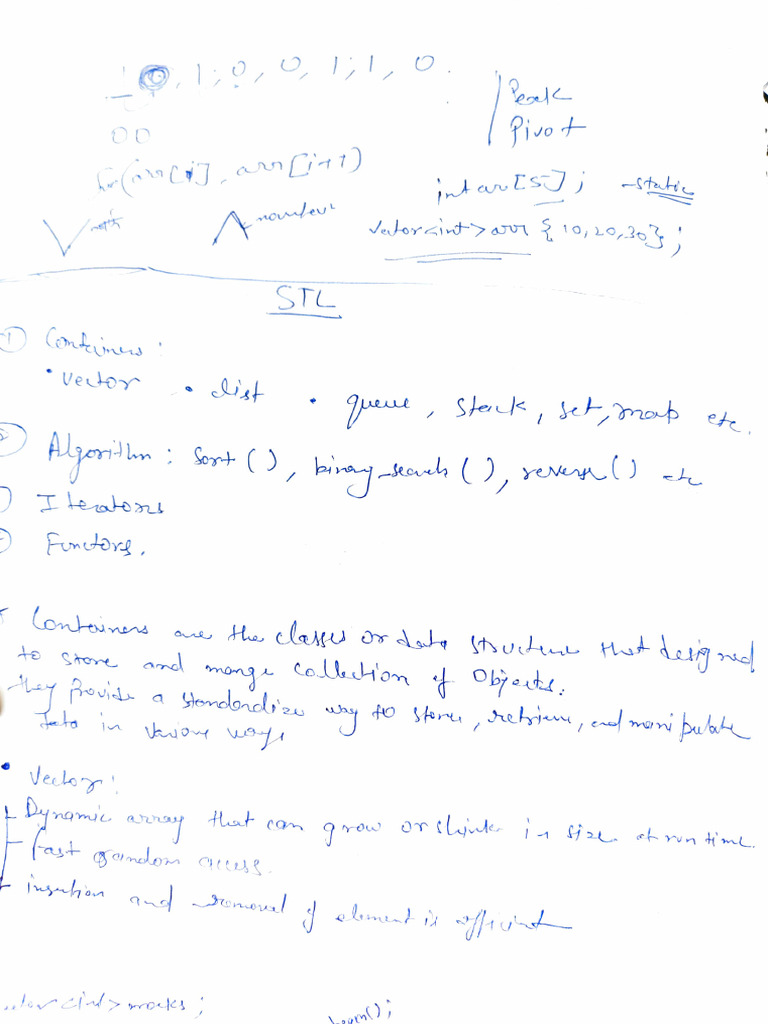 0, 1, 0, 0, 1, 1, 0.
Peak
Pivot
00
for(arr[i], arr[i+1)
int arr[5]; - static
vector<int> arr {10,20,30};
STL
① Containers:
• Vector • list • queue, Stack, set, map etc.
Algorithm: Sort(), binary_search(), reverse() etc
Iterators
Functors.
Containers are the classes or data structure that designed
to store and mange collection of Objects.
they provide a standardize way to store, retrieve, and manipulate
data in various ways
• Vector:
Dynamic array that can grow or shrink in size at run time.
fast random access.
insertion and removal of element is efficient
vector<int> marks;
begin();